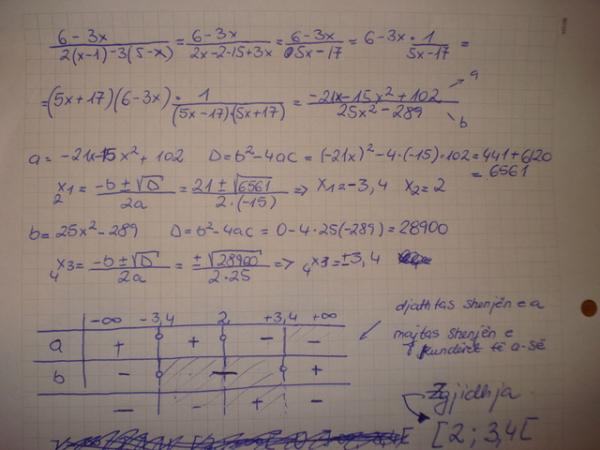 6-3x / 2(x-1)-3(5-x) = 6-3x / 2x-2-15+3x = 6-3x / 5x-17 = 6-3x · 1 / 5x-17 =
=(5x+17)(6-3x) · 1 / (5x-17)·(5x+17) = -21x-15x²+102 / 25x²-289
a
b
a = -21x-15x²+102 D=b²-4ac = (-21x)²-4·(-15)·102 = 441+6120
= 6561
x1 2 = -b±√D / 2a = 21±√6561 / 2·(-15) => x1=-3,4 x2=2
b = 25x²-289 D=b²-4ac = 0-4·25(-289) = 28900
x3 4 = -b±√D / 2a = ±√28900 / 2·25 => 4x3=±3,4
-∞ -3,4 2 +3,4 +∞
a + + - -
b - - +
- - + -
djathtas shenjën e a
majtas shenjën e
kundërt të a-së
Zgjidhja
[2; 3,4[